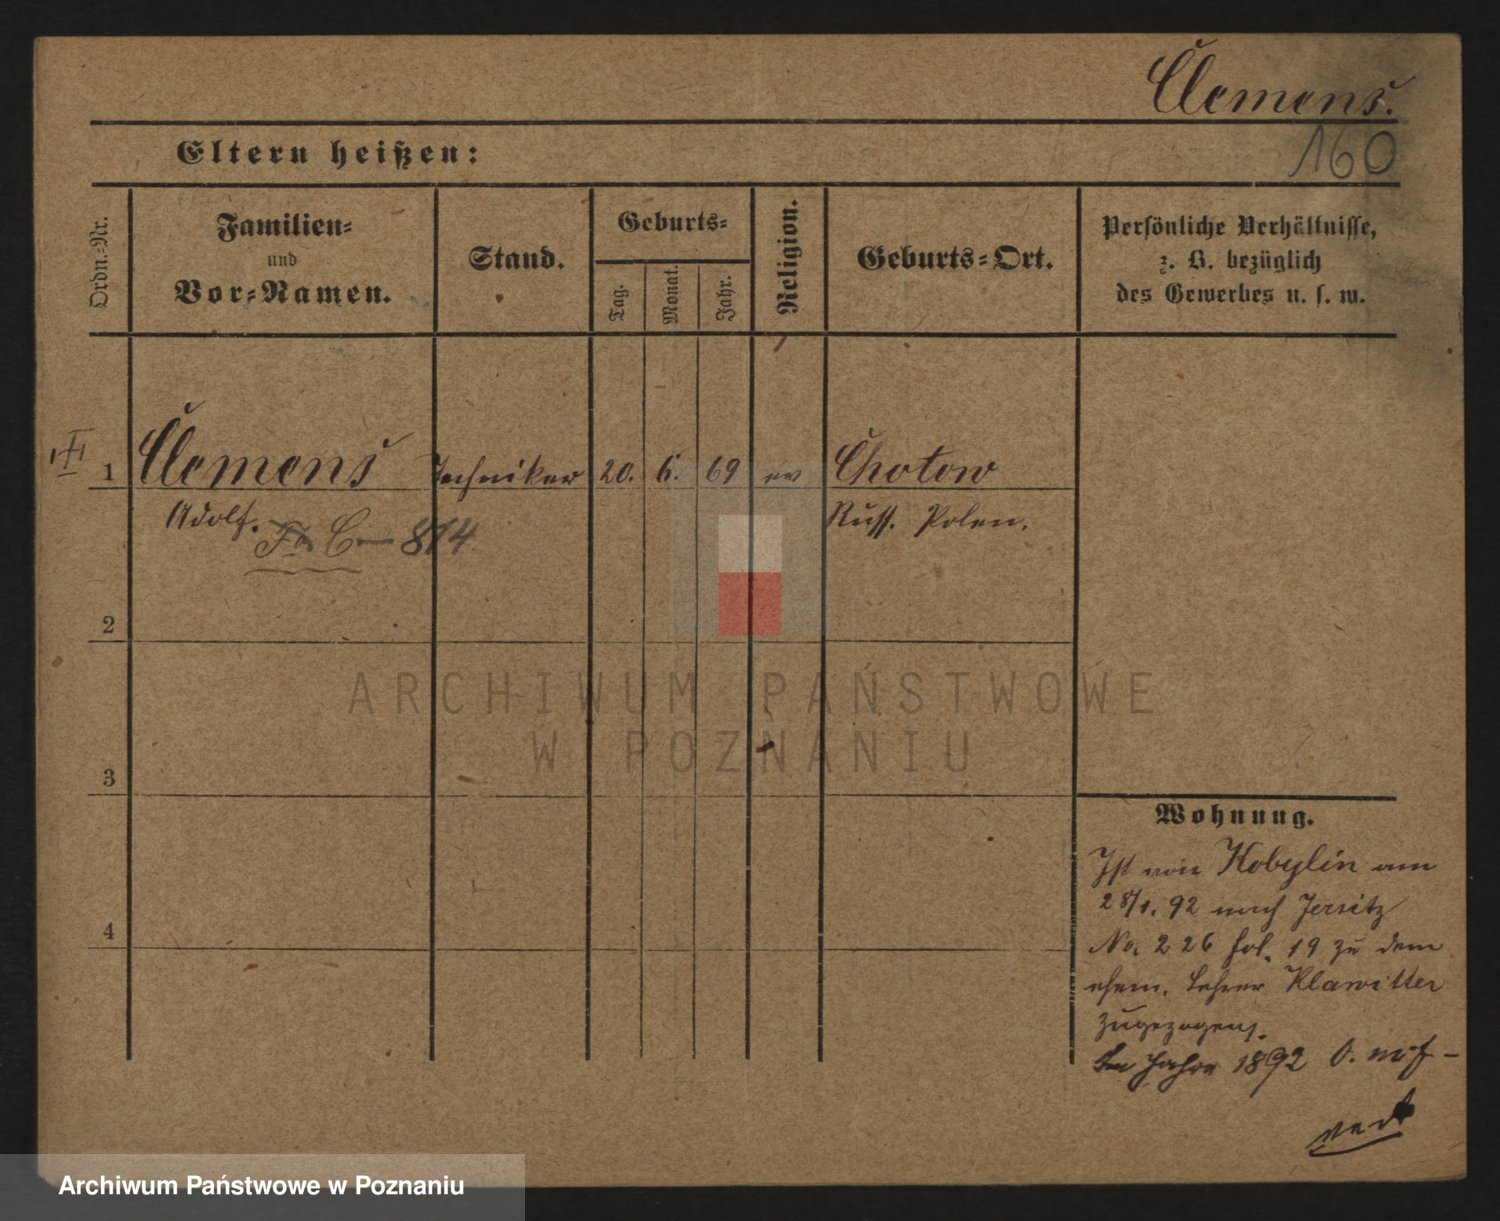 Clemens.
160
Eltern heißen:
Ordn.-Nr.
Familien-
und
Vor-Namen.
Stand.
Geburts-
Tag.
Monat.
Jahr.
Religion.
Geburts-Ort.
Persönliche Verhältnisse,
z. B. bezüglich
des Gewerbes u. s. w.
1 Clemens Techniker 20. 6. 69 ev Chotow
Adolf. Russ. Polen.
C— 814
2
3
4
Wohnung.
Ist von Kobylin am
28/1. 92 nach Jersitz
No. 226 fol. 19 zu dem
ehem. Lehrer Klawitter
zugezogen.
Im Jahre 1892
ARCHIWUM PAŃSTWOWE
W POZNANIU
Archiwum Państwowe w Poznaniu